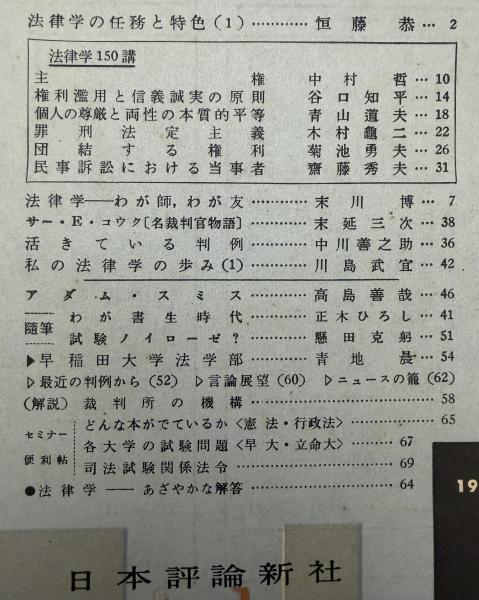 法律学の任務と特色(1)…………恒藤恭…2
法律学150講
主権 中村哲…10
権利濫用と信義誠実の原則 谷口知平…14
個人の尊厳と両性の本質的平等 青山道夫…18
罪刑法定主義 木村龜二…22
団結する権利 菊池勇夫…26
民事訴訟における当事者 齋藤秀夫…31
法律学――わが師,わが友…………末川博…7
サー・E・コウク[名裁判官物語]…………末延三次…38
活きている判例…………中川善之助…36
私の法律学の歩み(1)…………川島武宜…42
アダム・スミス…………高島善哉…46
随筆
わが書生時代…………正木ひろし…41
試験ノイローゼ?…………懸田克躬…51
▶早稲田大学法学部…………青地晨…54
▷最近の判例から(52) ▷言論展望(60) ▷ニュースの籠(62)
(解説)裁判所の機構…………58
セミナー便利帖
どんな本がでているか〈憲法・行政法〉…………65
各大学の試験問題〈早大・立命大〉…………67
司法試験関係法令…………69
●法律学――あざやかな解答…………64
19
日本評論新社